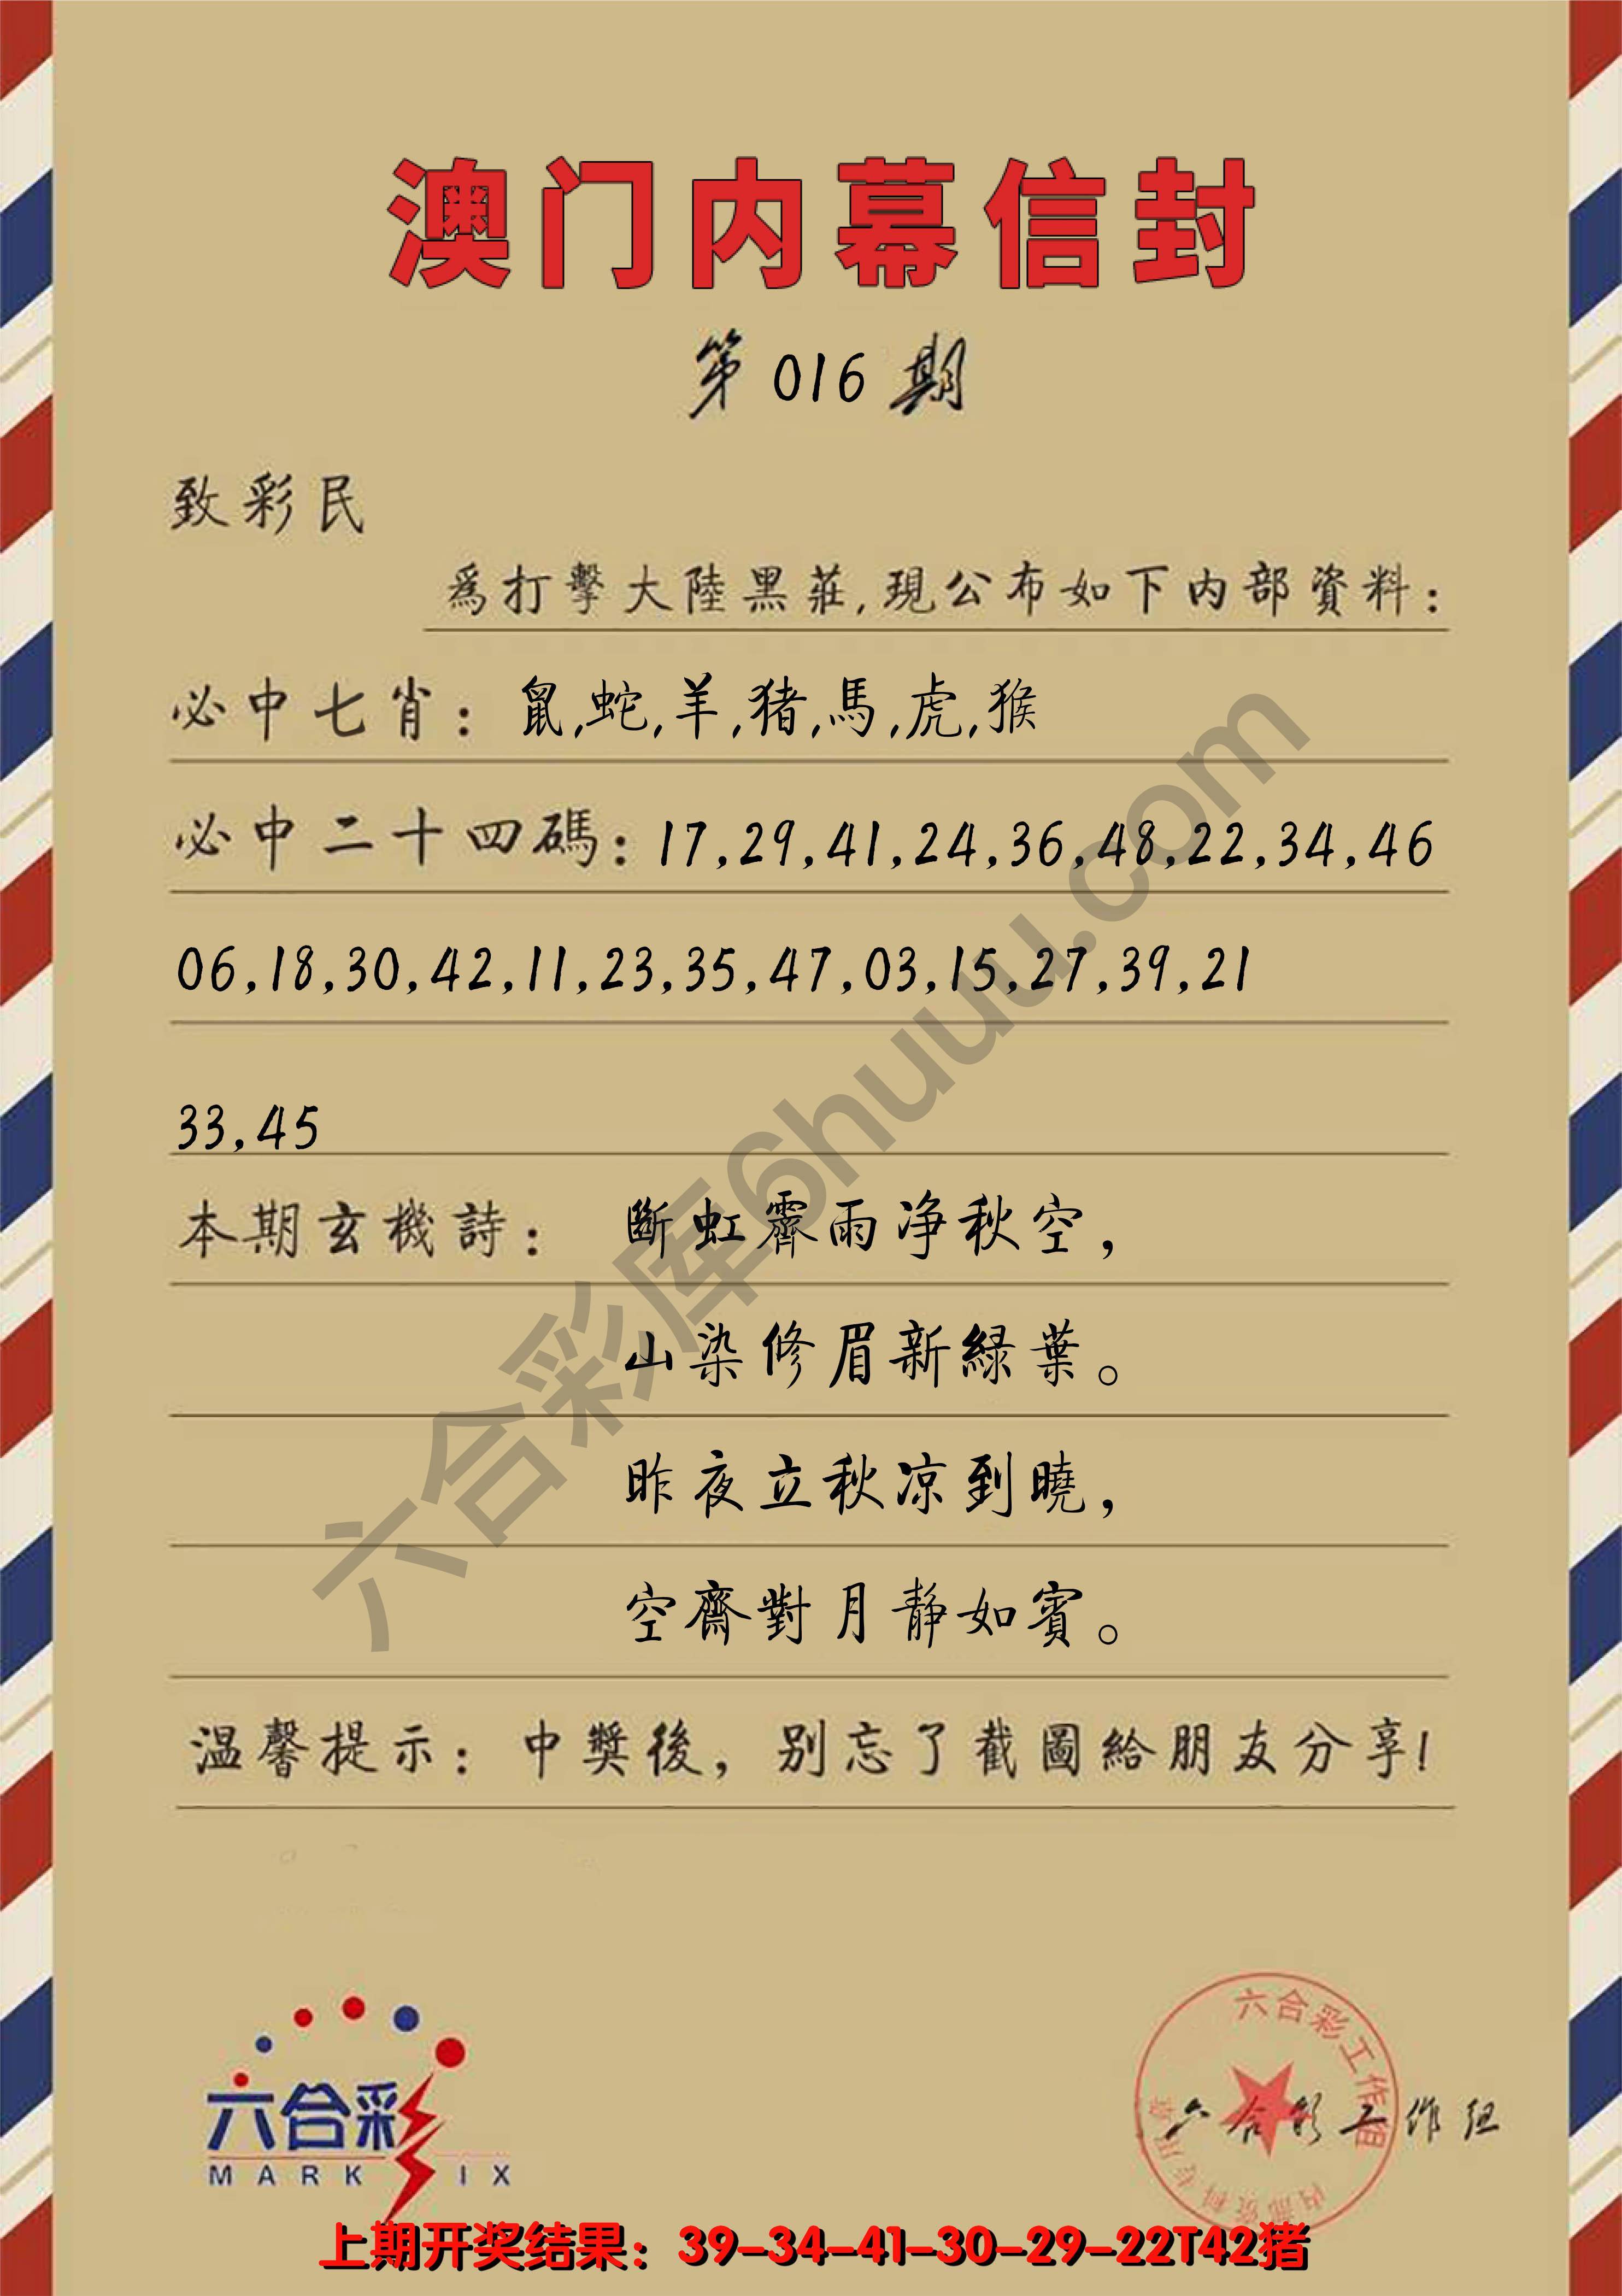 澳门内幕信封
第016期
致彩民
為打擊大陸黑莊,現公布如下内部資料:
必中七肖: 鼠,蛇,羊,猪,馬,虎,猴
必中二十四碼: 17,29,41,24,36,48,22,34,46
06,18,30,42,11,23,35,47,03,15,27,39,21
33,45
本期玄機詩: 斷虹霽雨净秋空,
山染修眉新緑葉。
昨夜立秋凉到曉,
空齋對月静如賓。
温馨提示: 中獎後, 别忘了截圖給朋友分享!
六合彩库6huuu.com
六合彩
MARK IX
六合彩工作组
内部资料专用章
六合彩工作组
上期开奖结果: 39-34-41-30-29-22T42猪